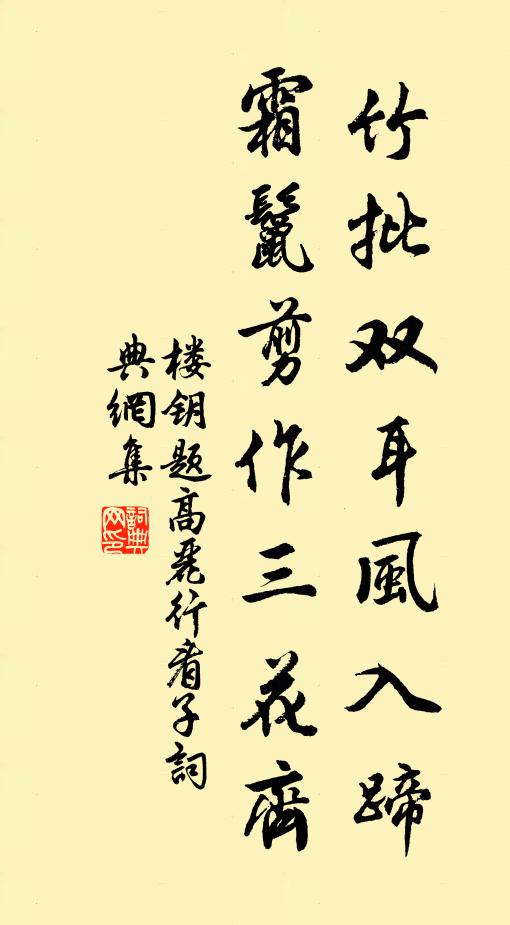 竹批双耳風入蹄
霜鬣剪作三花齊
楼钥题高麗行看子詞
典網集
詞典網印